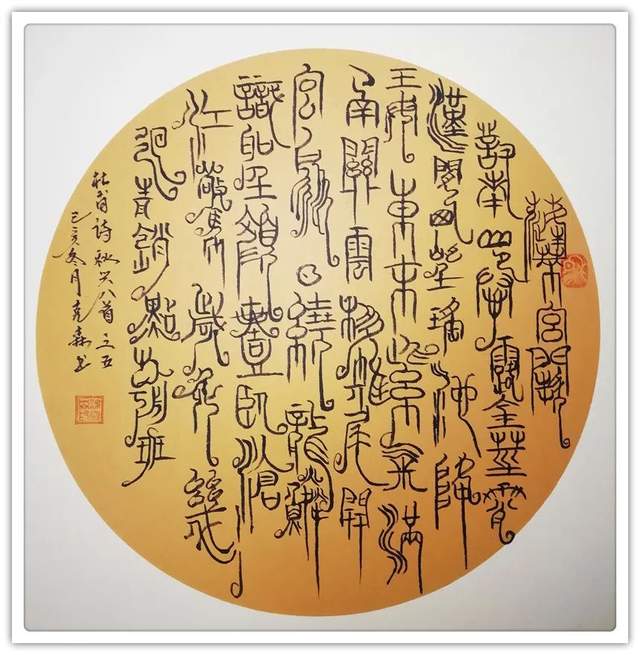 蓬萊宮闕
對南山承露金莖霄
漢間西望瑤池降
王母東來紫氣滿
函關雲移雉尾開
宮扇日繞龍鱗
識聖顏壹臥滄
江驚歲晚幾
迴青鎖點朝班
杜甫詩秋兴八首之五
己亥冬月克森书